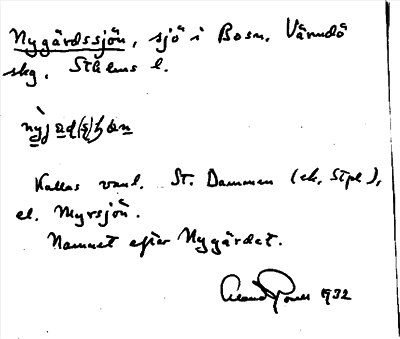 Nygårdssjön, sjö i Bosn. Värmdö
skg. Sthlms l.
Kallas vanl. St. Dammen (ek. Stpl),
el. Myrsjön.
Namnet efter Nygärdet.
1932